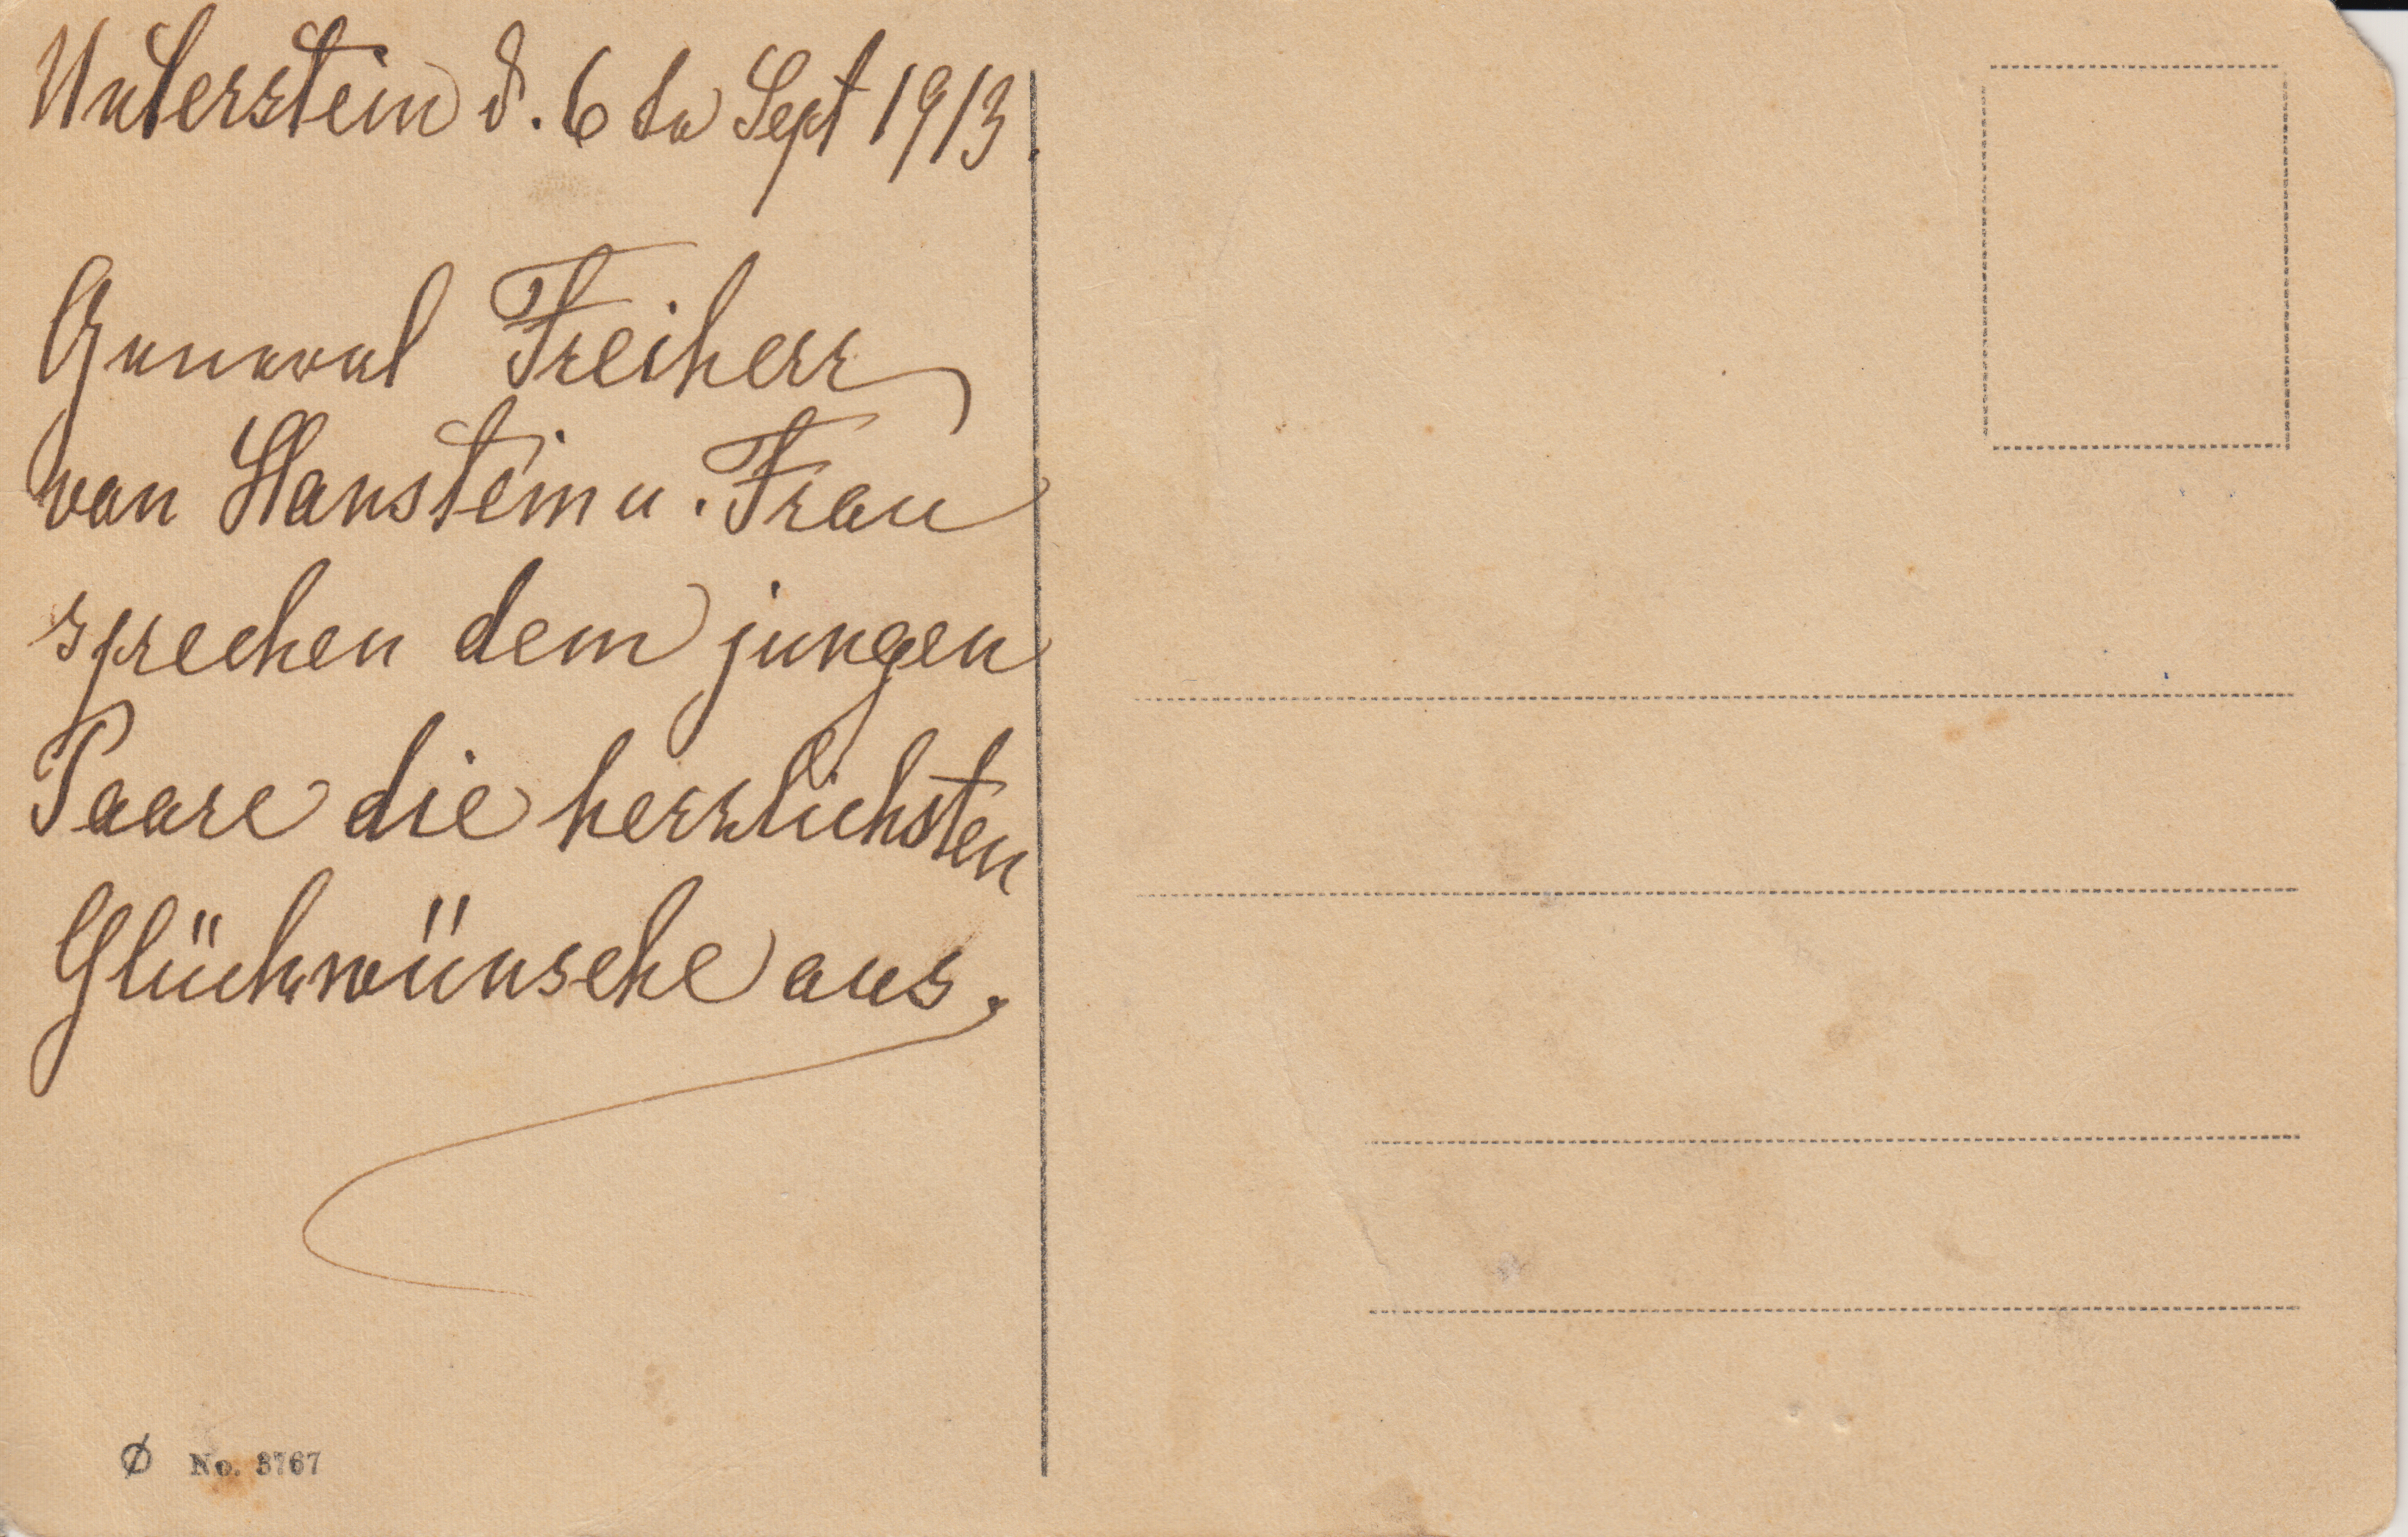 Unterstein d. 6 ta Sept 1913.
General Freiherr
von Hanstein u. Frau
sprechen dem jungen
Paare die herzlichsten
Glückwünsche aus.
No. 3767